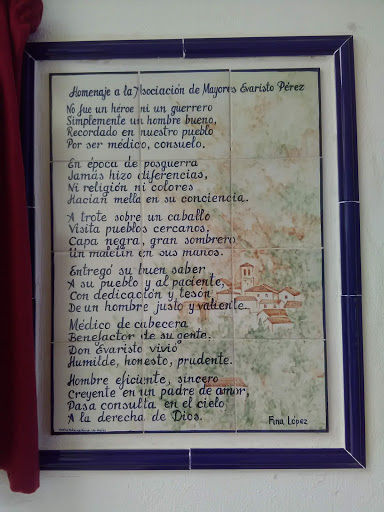 Homenaje a la Asociación de Mayores Evaristo Pérez
No fue un héroe ni un guerrero
Simplemente un hombre bueno,
Recordado en nuestro pueblo
Por ser médico, consuelo.
En época de posguerra
Jamás hizo diferencias,
Ni religión ni colores
Hacían mella en su conciencia.
A trote sobre un caballo
Visita pueblos cercanos,
Capa negra, gran sombrero
Un maletín en sus manos.
Entregó su buen saber
A su pueblo y al paciente,
Con dedicación y tesón,
De un hombre justo y valiente.
Médico de cabecera
Benefactor de su gente.
Don Evaristo vivió
Humilde, honesto, prudente.
Hombre eficiente, sincero
Creyente en un padre de amor,
Pasa consulta en el cielo
A la derecha de Dios.
Fina López